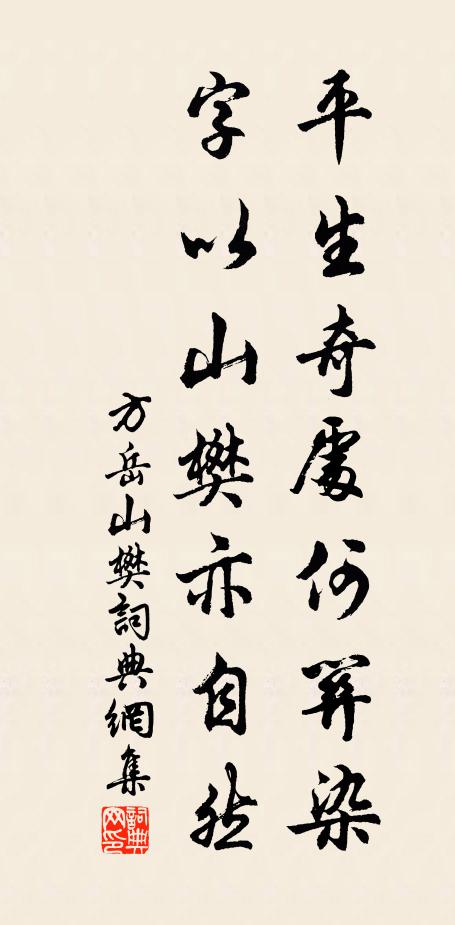 平生奇處何關染
字以山樊亦自然
方岳山樊詞典網集
詞典
网印